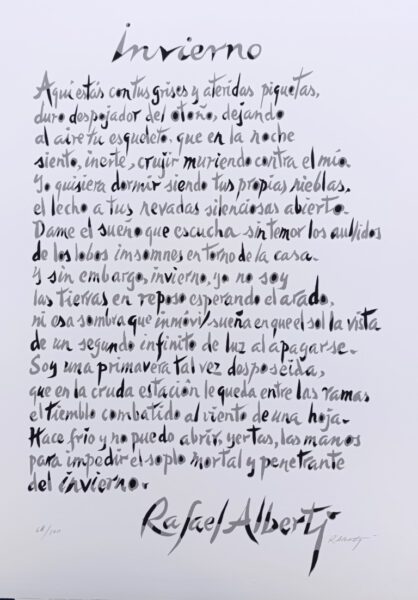 Invierno
Aquí estás con tus grises y ateridas piquetas,
duro despojador del otoño, dejando
al aire tu esqueleto. que en la noche
siento, inerte, crujir muriendo contra el mío.
Yo quisiera dormir siendo tus propias nieblas,
el lecho a tus nevadas silenciosas abierto.
Dame el sueño que escucha sin temor los aullidos
de los lobos insomnes en torno de la casa.
Y sin embargo, invierno, yo no soy
las tierras en reposo esperando el arado,
ni esa sombra que inmóvil sueña en que el sol la vista
de un segundo infinito de luz al apagarse.
Soy una primavera tal vez desposeída,
que en la cruda estación le queda entre las ramas
el tiemblo combatido al viento de una hoja.
Hace frío y no puedo abrir, yertas, las manos
para impedir el soplo mortal y penetrante
del invierno.
Rafael Alberti